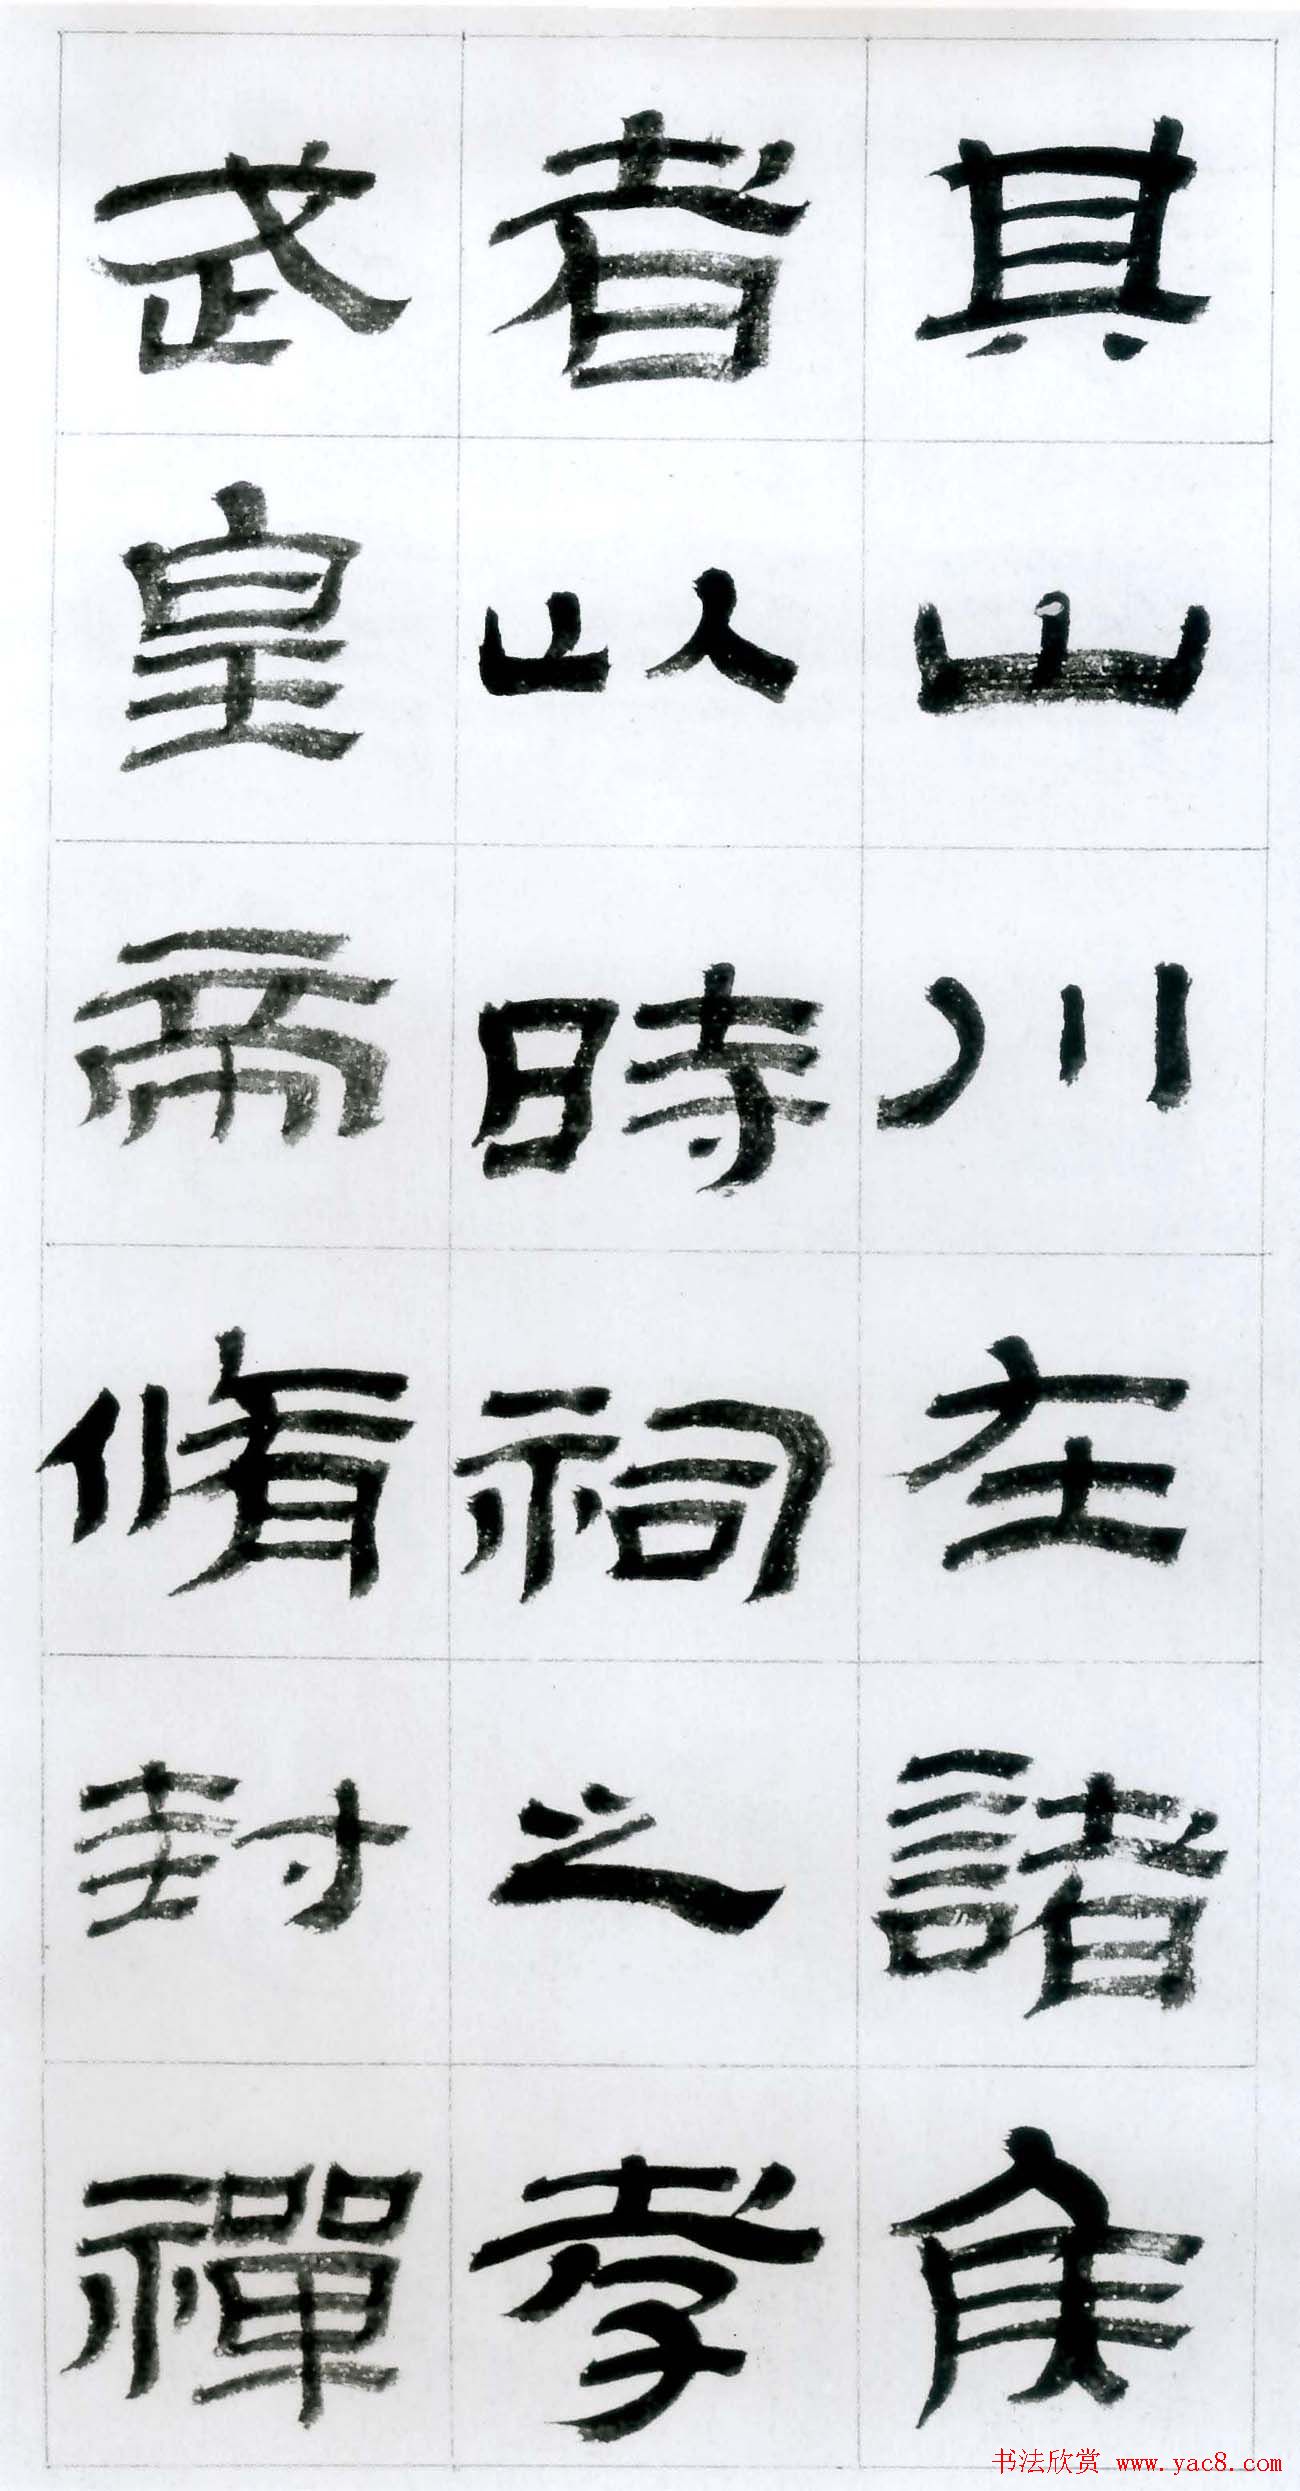 其山川在諸侯
者以時祠之孝
武皇帝脩封禪
书法欣赏 www.yac8.com